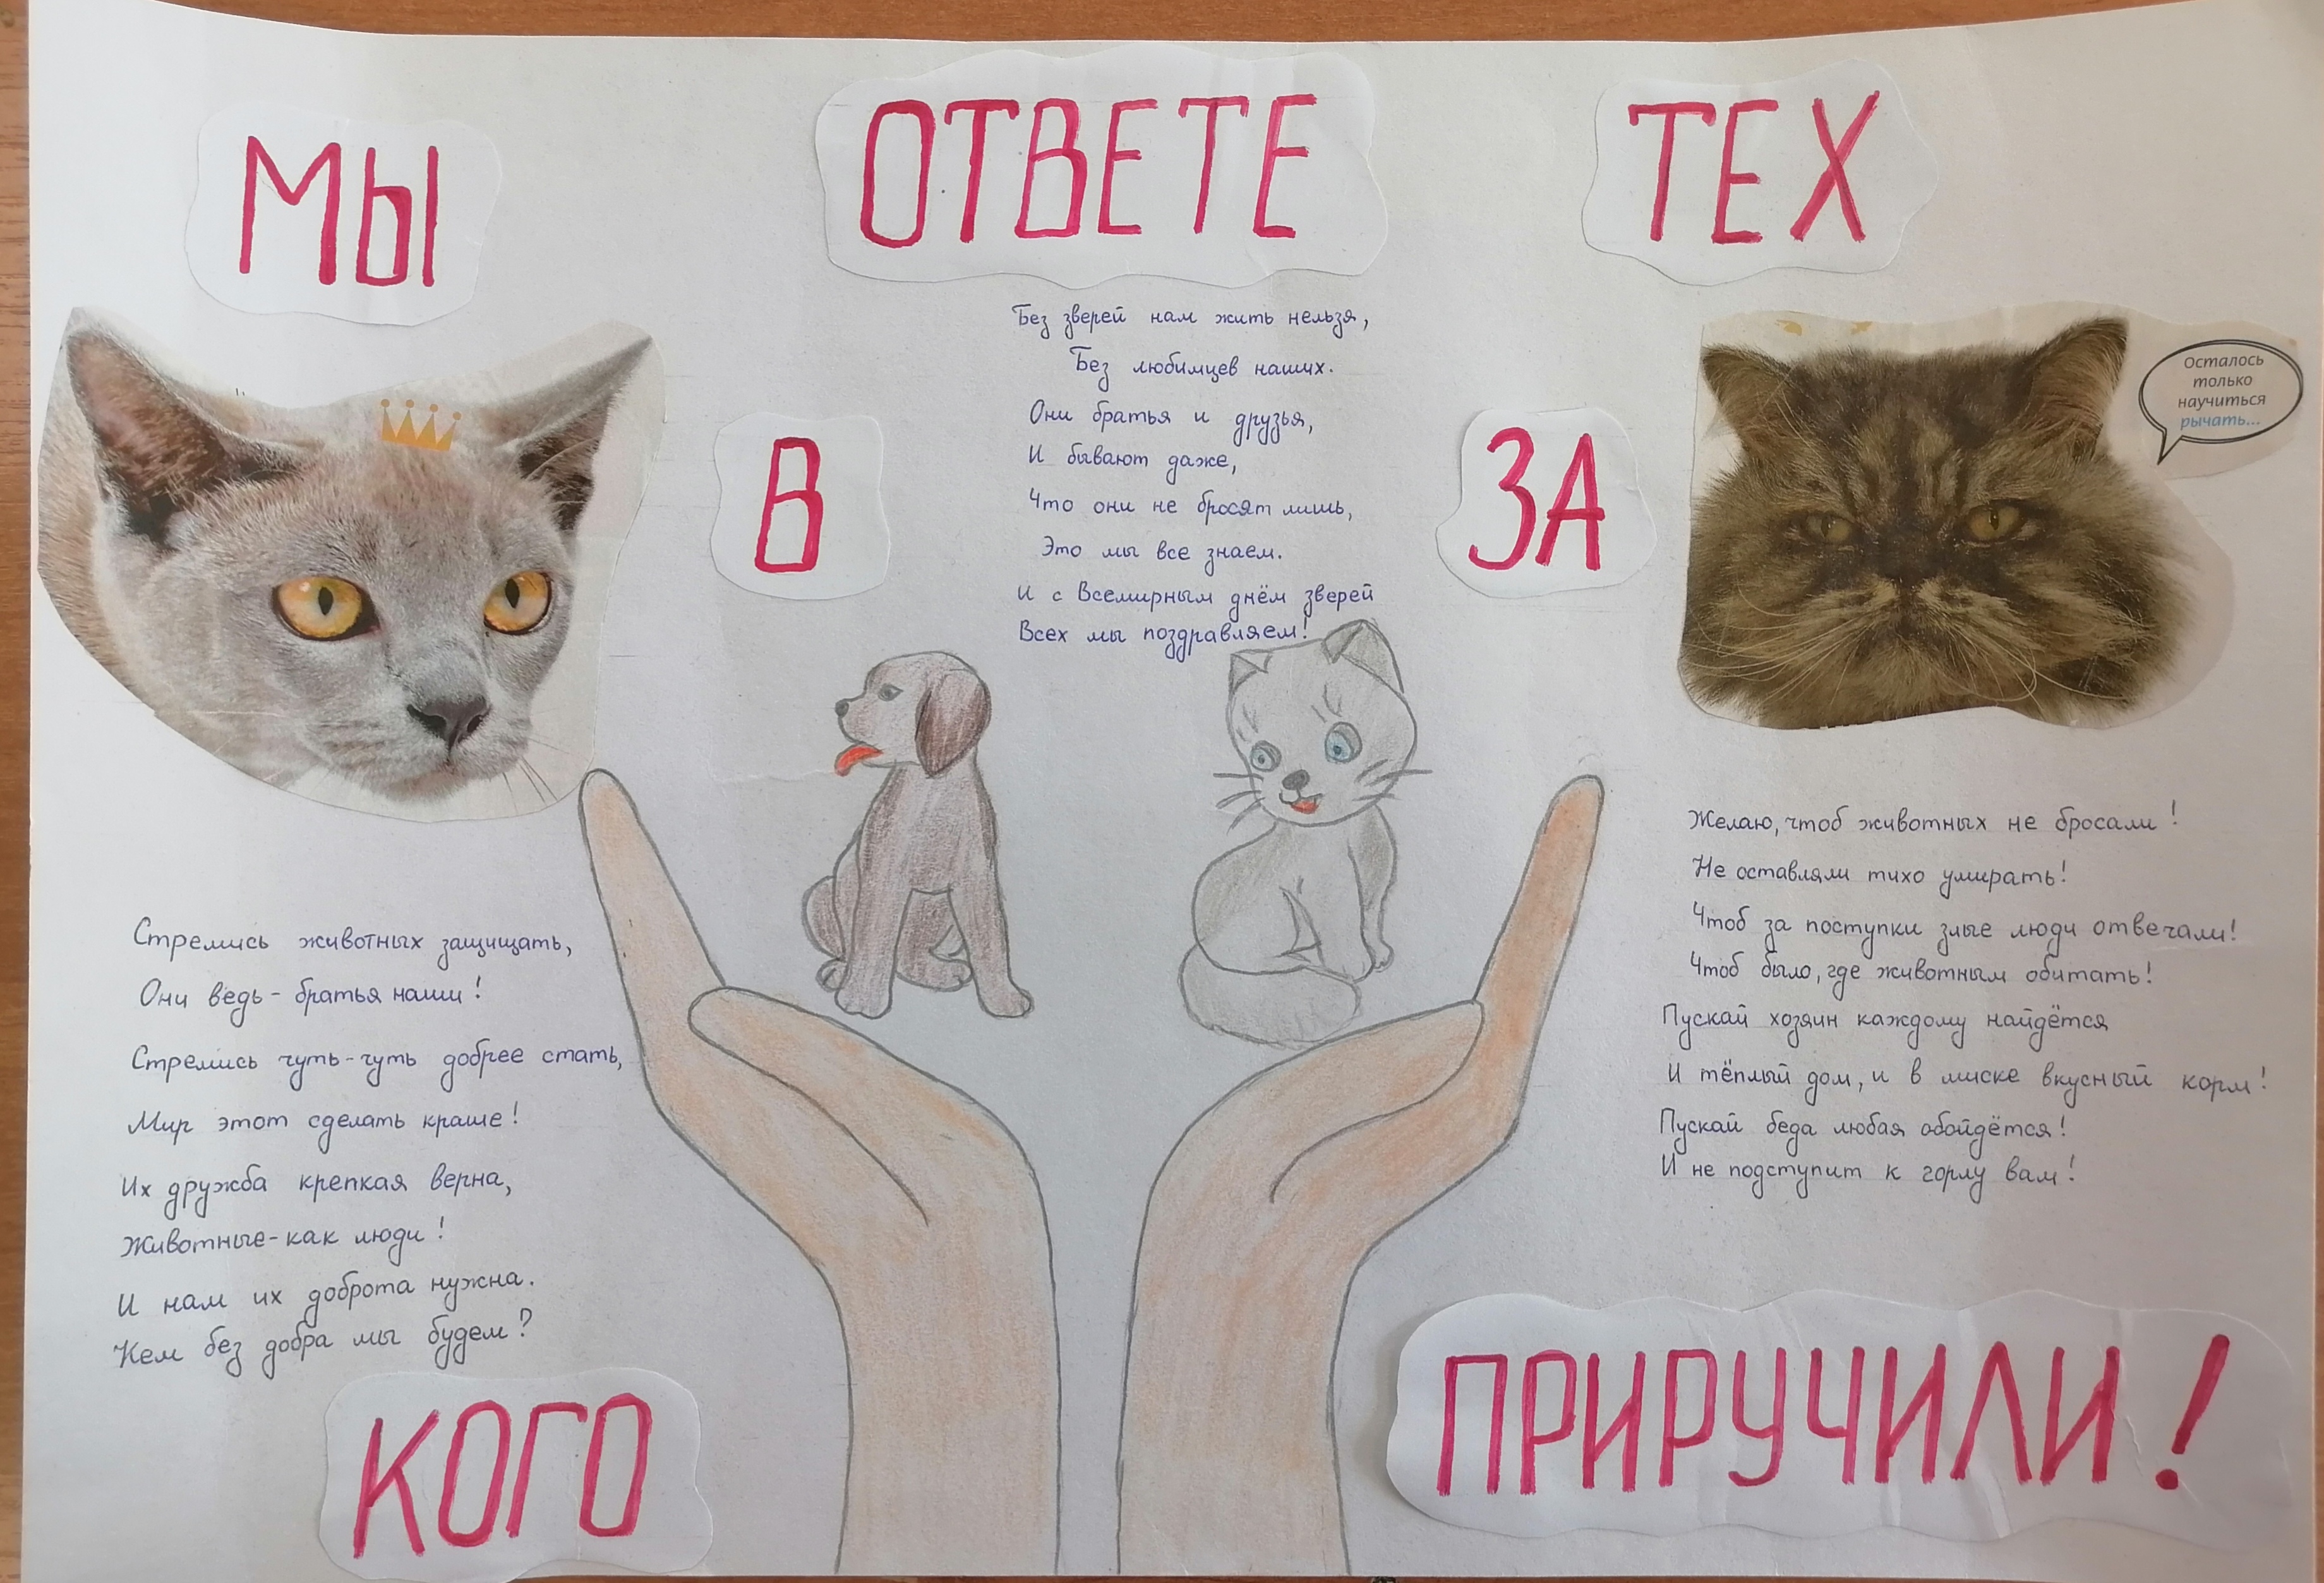 МЫ
В
ОТВЕТЕ
ЗА
ТЕХ
КОГО
ПРИРУЧИЛИ!
Без зверей нам жить нельзя,
Без любимцев наших.
Они братья и друзья,
И бывают даже,
Что они не бросят лишь,
Это мы все знаем.
И с Всемирным днём зверей
Всех мы поздравляем!
Осталось
только
научиться
рычать...
Стремись животных защищать,
Они ведь - братья наши!
Стремись чуть-чуть добрее стать,
Мир этот сделать краше!
Их дружба крепкая верна,
Животные - как люди!
И нам их доброта нужна.
Кем без добра мы будем?
Желаю, чтоб животных не бросали!
Не оставляли тихо умирать!
Чтоб за поступки злые люди отвечали!
Чтоб было, где животным обитать!
Пускай хозяин каждому найдётся
И тёплый дом, и в миске вкусный корм!
Пускай беда любая обойдётся!
И не подступит к горлу вам!